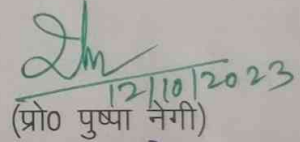 12/10/2023
(प्रो0 पुष्पा नेगी)